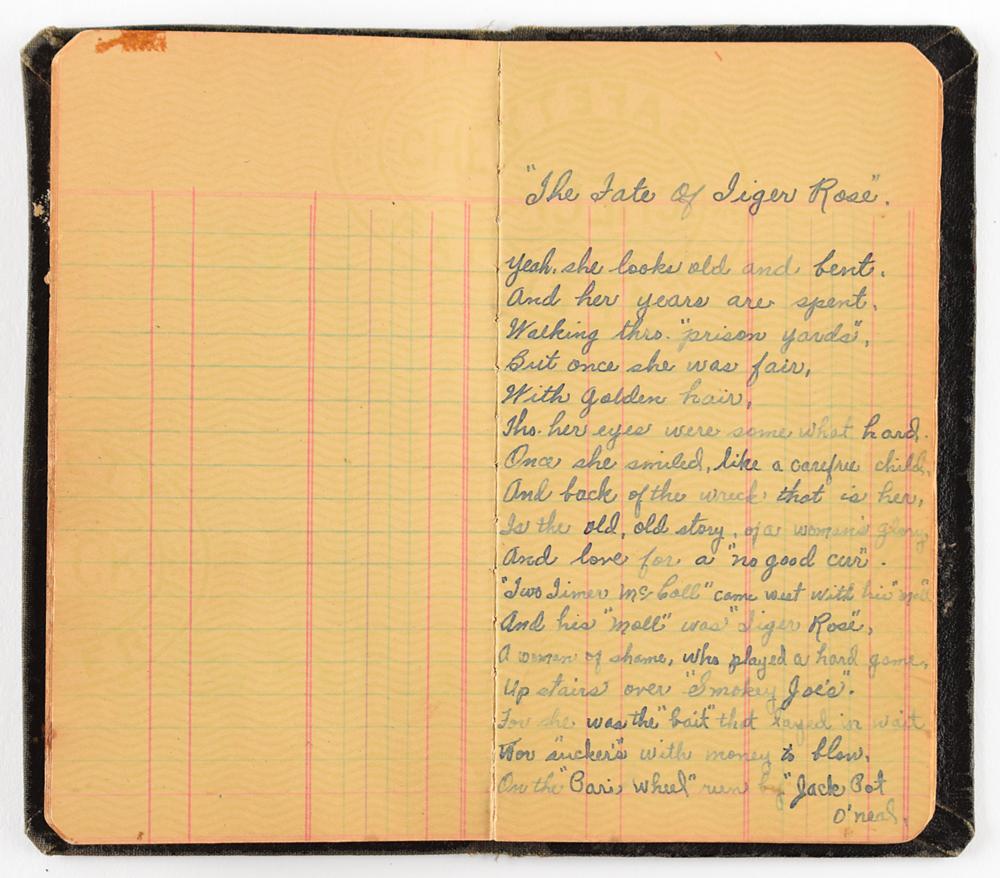 "The Fate Of Tiger Rose".
Yeah. she looks old and bent.
And her years are spent,
Walking thro. "prison yards",
But once she was fair,
With golden hair,
Tho. her eyes were some what hard.
Once she smiled, like a carefree child,
And back of the wreck that is her,
Is the old, old story, of a woman's glory
And love for a "no good cur".
"Two Timer Mc Coll" came west with his "moll"
And his "moll" was "Tiger Rose",
A woman of shame, who played a hard game,
Up stairs over "Smokey Joe's".
For she was the "bait" that layed in wait
For suckers with money to blow.
On the "Paris wheel" run by "Jack Pot
O'neal.